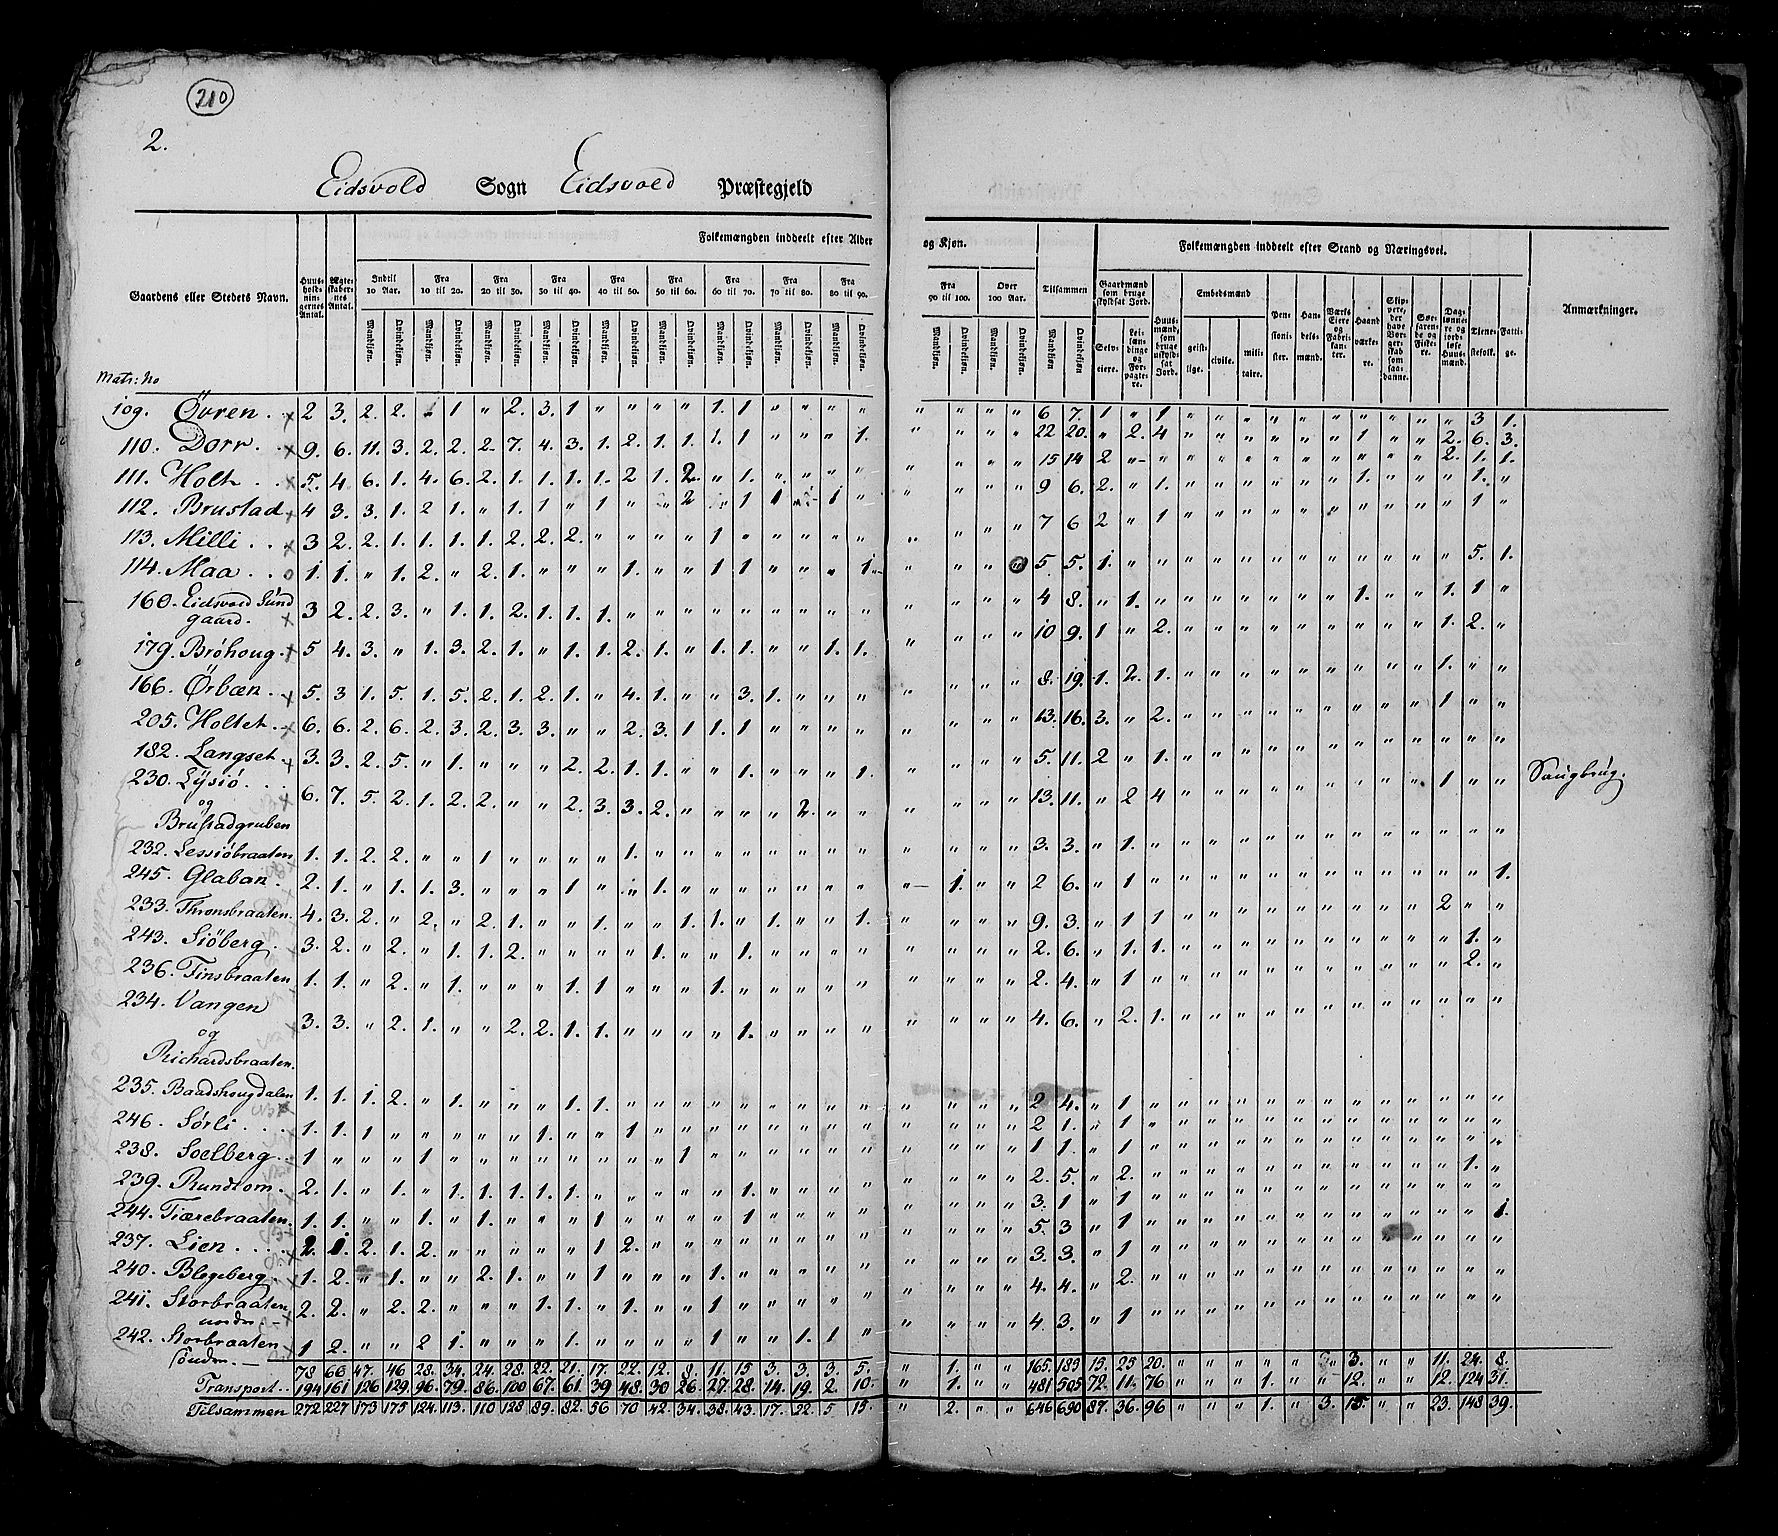 210
2.
Eidsvold Sogn Eidsvold Præstegjeld
Folkemængden inddeelt efter Alder og Kjøn. Folkemængden inddeelt efter Stand og Næringsvei.
Gaardens eller Stedets Navn. Huusholdningernes Antal. Ægteskabernes Antal. Indtil 10 Aar. Fra 10 til 20. Fra 20 til 30. Fra 30 til 40. Fra 40 til 50. Fra 50 til 60. Fra 60 til 70. Fra 70 til 80. Fra 80 til 90. Fra 90 til 100. Over 100 Aar. Tilsammen Gaardmænd som bruge skyldsat Jord. Huusmænd, som bruge uskyldsat Jord. Embedsmænd Pensionister. Handelsmænd. Værks Eiere og Fabrikanter. Haandværkere. Skippere, der have Borgerskab som saadanne. Søefarende og Fiskere. Daglønnere og jordløse Huusmænd. Tjenestefolk. Fattige. Anmærkninger.
Mandkjøn. Qvindekjøn. Selveiere. Leilændinge og Forpagtere. geistlige. civile. militaire.
Matr: No
109. Övren . . x 2 3. 2. 2. " 1 " 2. 3. 1 " " " " 1. 1 " " " " " " " " 6 7. 1 " 1 " " " " " " " " " " 3 1.
110. Dorr . . x 9. 6. 11. 3. 2. 2. 2. 7. 4. 3. 1. 2. 1. 1. 1. 1 " " " 1. " " " " 22 20. " 2. 4 " " " " " " 1 " " 2. 6. 3.
111. Holt . . x 5. 4 6. 1. 4. 6. 2. 1. 1. 1. 1. 2 1. 2 " 1. " " " " " " " " 15 14 2 " " " " " " " " " " " 2. 1. 1.
112. Brustad x 4 3. 3. 1. 2 1. " 1. 1 " 1 " " 2 " 1 1 " 1 " " " " " 9 6. 2. " 1. " " " " " " 1. " " " 1. "
113. Milli . . x 3 2. 2. 1. 1. 1. 1. 2. 2. 2. " " " " 1 " " " " " " " " " 7 6 2 " 1 " " " " " " " " " " 1 "
114. Maa . . o 1. 1. " 1. 2. " 2. 1. " " " 1. " " 1 1 " " " 1 " " " " 5. 5. 1. " " " " " " " " " " " " 5. 1.
160. Eidsvold Sund
gaard. x 3 2. 2. 3. " 1. 1. 2. 1. 1. 1. " " " " " " " " " " " " " 4 8. " 1. " " " " " " " 1. " " 1. 1 "
179. Bröhoug . x 5 4. 3. " 1. 3. 2. 1. " 1. 1. 2. 1. " 1. 1. " " 1. 1. " " " " 10 9. 1 " 2. " " " " " " " " " 1. 2. "
166. Örbæn . . x 5. 3 1. 5. 1. 5. 2. 1. 2. 1. " 4. 1. " " 3. 1. " " " " " " " 8. 19. 1. 2. 1. " " " " " " " " " 1. " "
205. Holtet . . x 6. 6. 2. 6. 2. 3. 2. 3. 3. " " 2. 3. 1 1. 1 " " " " " " " " 13. 16. 3. " 2. " " " " " " " " " 1 " "
182. Langset . x 3. 3. 2. 5. " 1. " " " 2. 2. 1. 1. " " 1. " " " 1. " " " " 5. 11. 2 " 1. " " " " " " " " " " " "
230. Lysiö . . .
og x 6. 7. 5. 2. 1. 2. 2. " " 2. 3. 3. 2. " " " " 2. " " " " " " 13. 11. " 2 4 " " " " " " " " " 1 " " Saugbrug.
Brustadgruben
232. Lessiöbraaten 1. 1. 2. 2. " " 1 " " " " 1. " " " " " " " " " " " " 3. 3. " 1. " " " " " " " " " " " " "
245. Glaban . 2. 1. " 1. 1. 3. " " " 1 " " 1. " " " " " " " " 1. " " 2 6. " 1 " " " " " " " " " " " " 1.
233. Thronsbraaten. 4. 3. 2. " 2. " 2. 1. " " 1. " " 1. 1. " 1. " " 1. " " " " 9. 3. " 1 1 " " " " " " " " " 2 " "
243. Siöberg . 3. 2. " 2. " 1. 1. 2. " " " " 1. " " 1. " " " " " " " " 2. 6. " 1. 1. " " " " " " " " " " 1. "
236. Finsbraaten 1. 1. " 2. " 1. " " " 1. 1 " " " 1. " " " " " " " " " 2. 4. " 1 " " " " " " " " " " " 2. "
234. Vangen
og x 3. 3. " 2. 1. " " 2. 2. 1. 1. " " " " 1. " " " " " " " " 4. 6. " 2. 1. " " " " " " " " " " " "
Richardsbraaten.
235. Baadshougdalen 1. 1. 1. 2. " 1. " " " 1. 1. " " " " " " " " " " " " " 2 4. " 1 " " " " " " " " " " " " "
246. Sörli . . . 1. 1. 1 " " " " " 1. " " 1 " " " " " " " " " " " " 2 1. " 1 " " " " " " " " " " " " "
238. Soelberg . . 1 " " " 1 " " " " " " " " 1 " " " " " " " " " " 1 1. " 1 " " " " " " " " " " " " "
239. Rundtom . 2. 1. " 1. " 1. 1. 1. 1. 1. " " " " " 1. " " " " " " " " 2. 5. " 2. " " " " " " " " " " " 1. "
244. Tiærebraaten. 1. 1. " " 1. " 1. " " " 1 " " " " 1 " " " " " " " " 3. 1 " 1 " " " " " " " " " " " " "
237. Lien . . . . 2. 1. 2. 1. 2. " " " " " 1 2. " " " " " " " " " " " " 5. 3 " 1 " " " " " " " " " " " " 1.
240. Blegeberg 1. 2. " 1. " " 2. 1. " " 1 " " " 1. " " " " " " " " " 3. 3. " 1 " " " " " " " " " " " " "
241. Storbraaten
nordre x 2. 2. " 2. 2. " " " 1. 1. " 1. " " 1 " " " " " " " " " 4. 4. " 2. " " " " " " " " " " " " "
242. Storbraaten
söndre. 1 2. " " 2 1. " " " 1. " " " " 1 " " 1. 1 " " " " " 4. 3. " 1 " " " " " " " " " " " " "
78 66 47. 46 28. 34. 24. 28. 22. 21. 17. 22. 12. 8. 11. 15 3. 3. 3. 5. " 1. " " 165. 183 15. 25 20. " " " " " 3. " " 11. 24. 8.
Transport . . 194 161 126 129. 96. 79. 86. 100 67. 61. 39 48. 30 26. 27. 28. 14. 19. 2. 10. " 1. " " 481 505 72. 11. 76 " " " 1. " " 12. " " 12. 124 31.
Tilsammen 272 227 173 175 124. 113. 110 128 89. 82. 56 70 42. 34. 38. 43. 17. 22. 5 15. " 2. " " 646 690 87. 36. 96 " " " 1. " 3. 15. " " 23. 148 39.